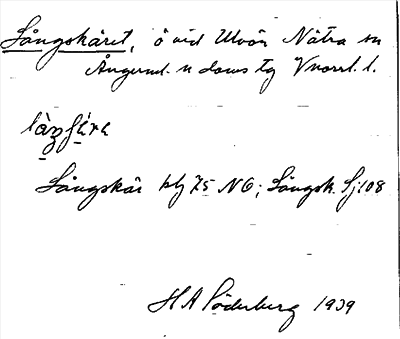 Långskäret, ö vid Ulvön Nätra sn
Ångerml. n doms tg Vnorrl. l.
Långskär blj 75 NO; Långsk. Sj. 108
H A Söderberg 1939